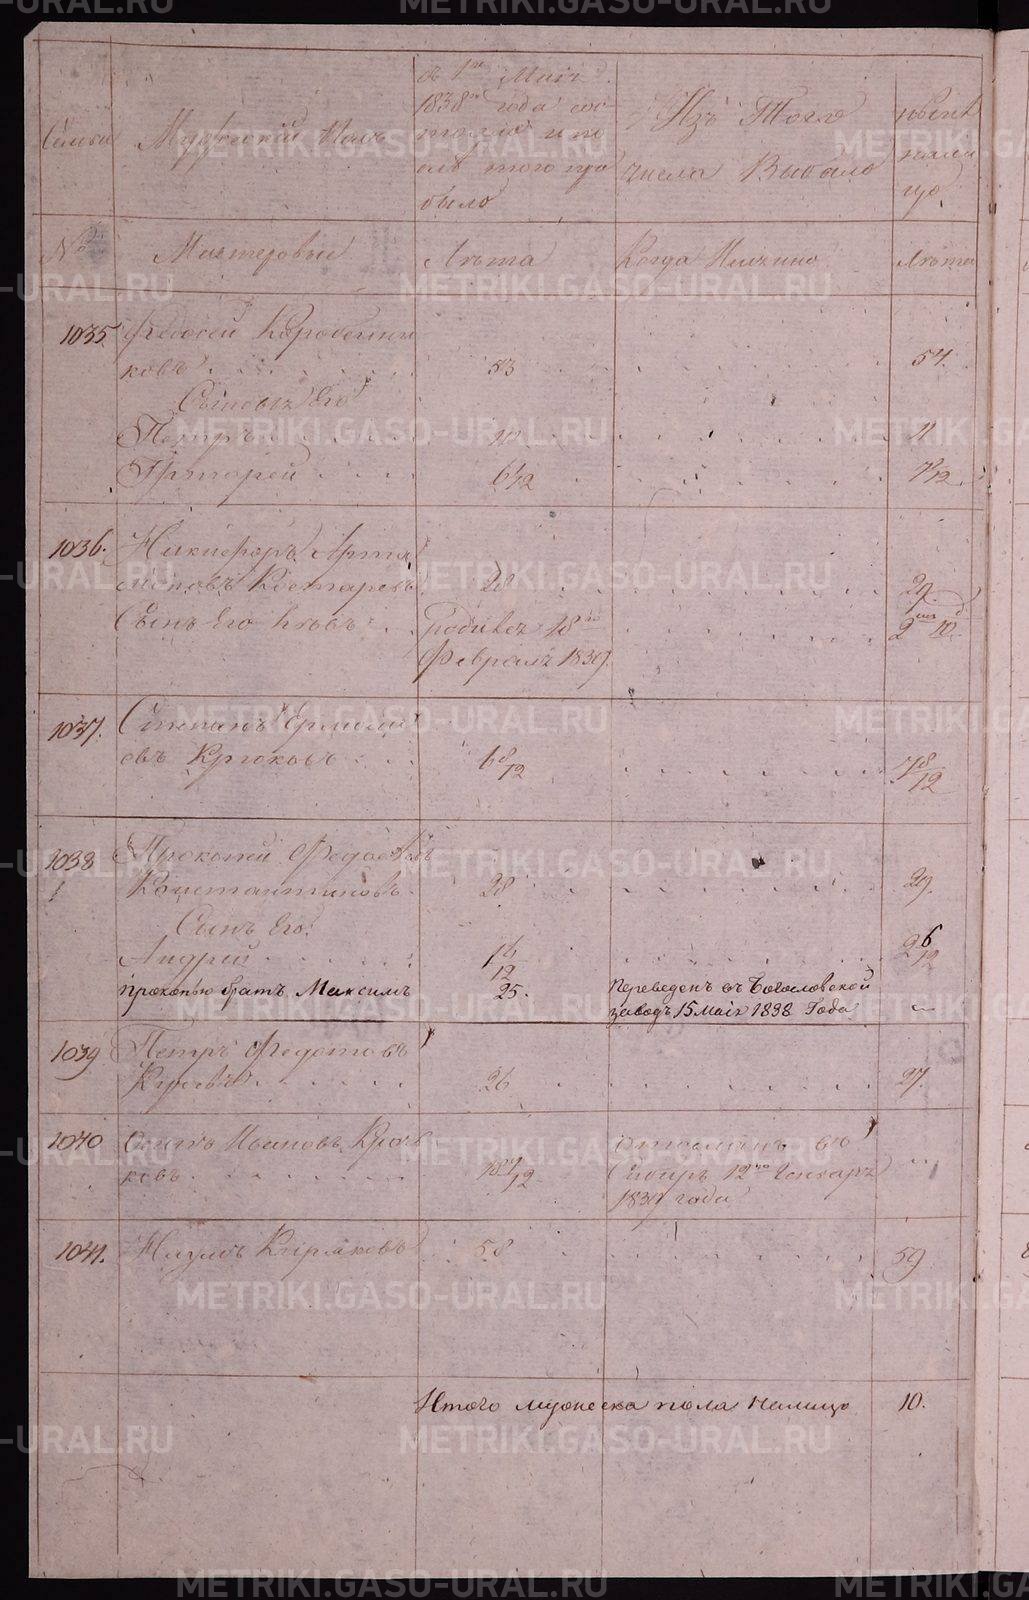 Семьи
Мужеский Полъ
съ 1го Маія
1838го года сос-
тояло и по
слѣ того при
было
Изъ Того
числа Выбыло
нынѣ
нали
цо
№
Мастеровыи
Лѣта
Когда Имянно
Лѣта
1035 Федосей Коробейни
ковъ 53 54.
Сыновья Его
Петръ 10 11
Григорей 6/12 7/12
1036. Никифоръ Артя
моновъ Костаревъ 28 29.
Сынъ Его Глѣбъ Родился 18го 2 10
Февраля 1839
1037. Степанъ Ермолае
въ Крюковъ 6 8/12 7 8/12
1038 Прокопей Федосѣевъ
Константиновъ 28 29.
Сынъ Его
Андрей 1 6/12 2 6/12
Прокопью братъ Максимъ 25. Переведенъ въ Богословской
заводъ 15 Маія 1838 Года
1039 Петръ Федотовъ
Киревъ 26 27.
1040 Осипъ Ивановъ Крю
ковъ 18 9/12 отосланъ во
Сибирь 12го Генваря
1839 года
1041. Наумъ Кирпаковъ 58 59
Итого мужеска пола налицо 10.
METRIKI.GASO-URAL.RU